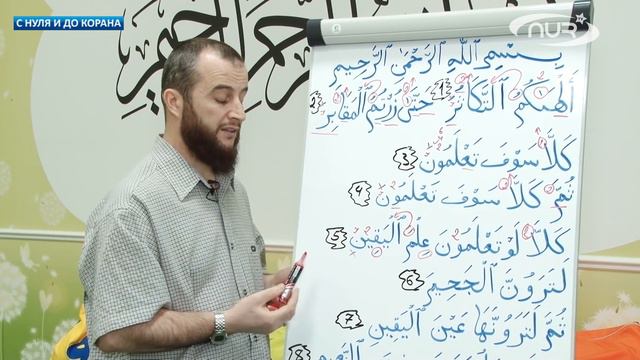 С НУЛЯ И ДО КОРАНА
NUR
بِسْمِ اللهِ الرَّحْمٰنِ الرَّحِيمِ
أَلْهَىٰكُمُ التَّكَاثُرُ 1 حَتَّىٰ زُرْتُمُ الْمَقَابِرَ 2
كَلَّا سَوْفَ تَعْلَمُونَ 3
ثُمَّ كَلَّا سَوْفَ تَعْلَمُونَ 4
كَلَّا لَوْ تَعْلَمُونَ عِلْمَ الْيَقِينِ 5
لَتَرَوُنَّ الْجَحِيمَ 6
ثُمَّ لَتَرَوُنَّهَا عَيْنَ الْيَقِينِ 7
8